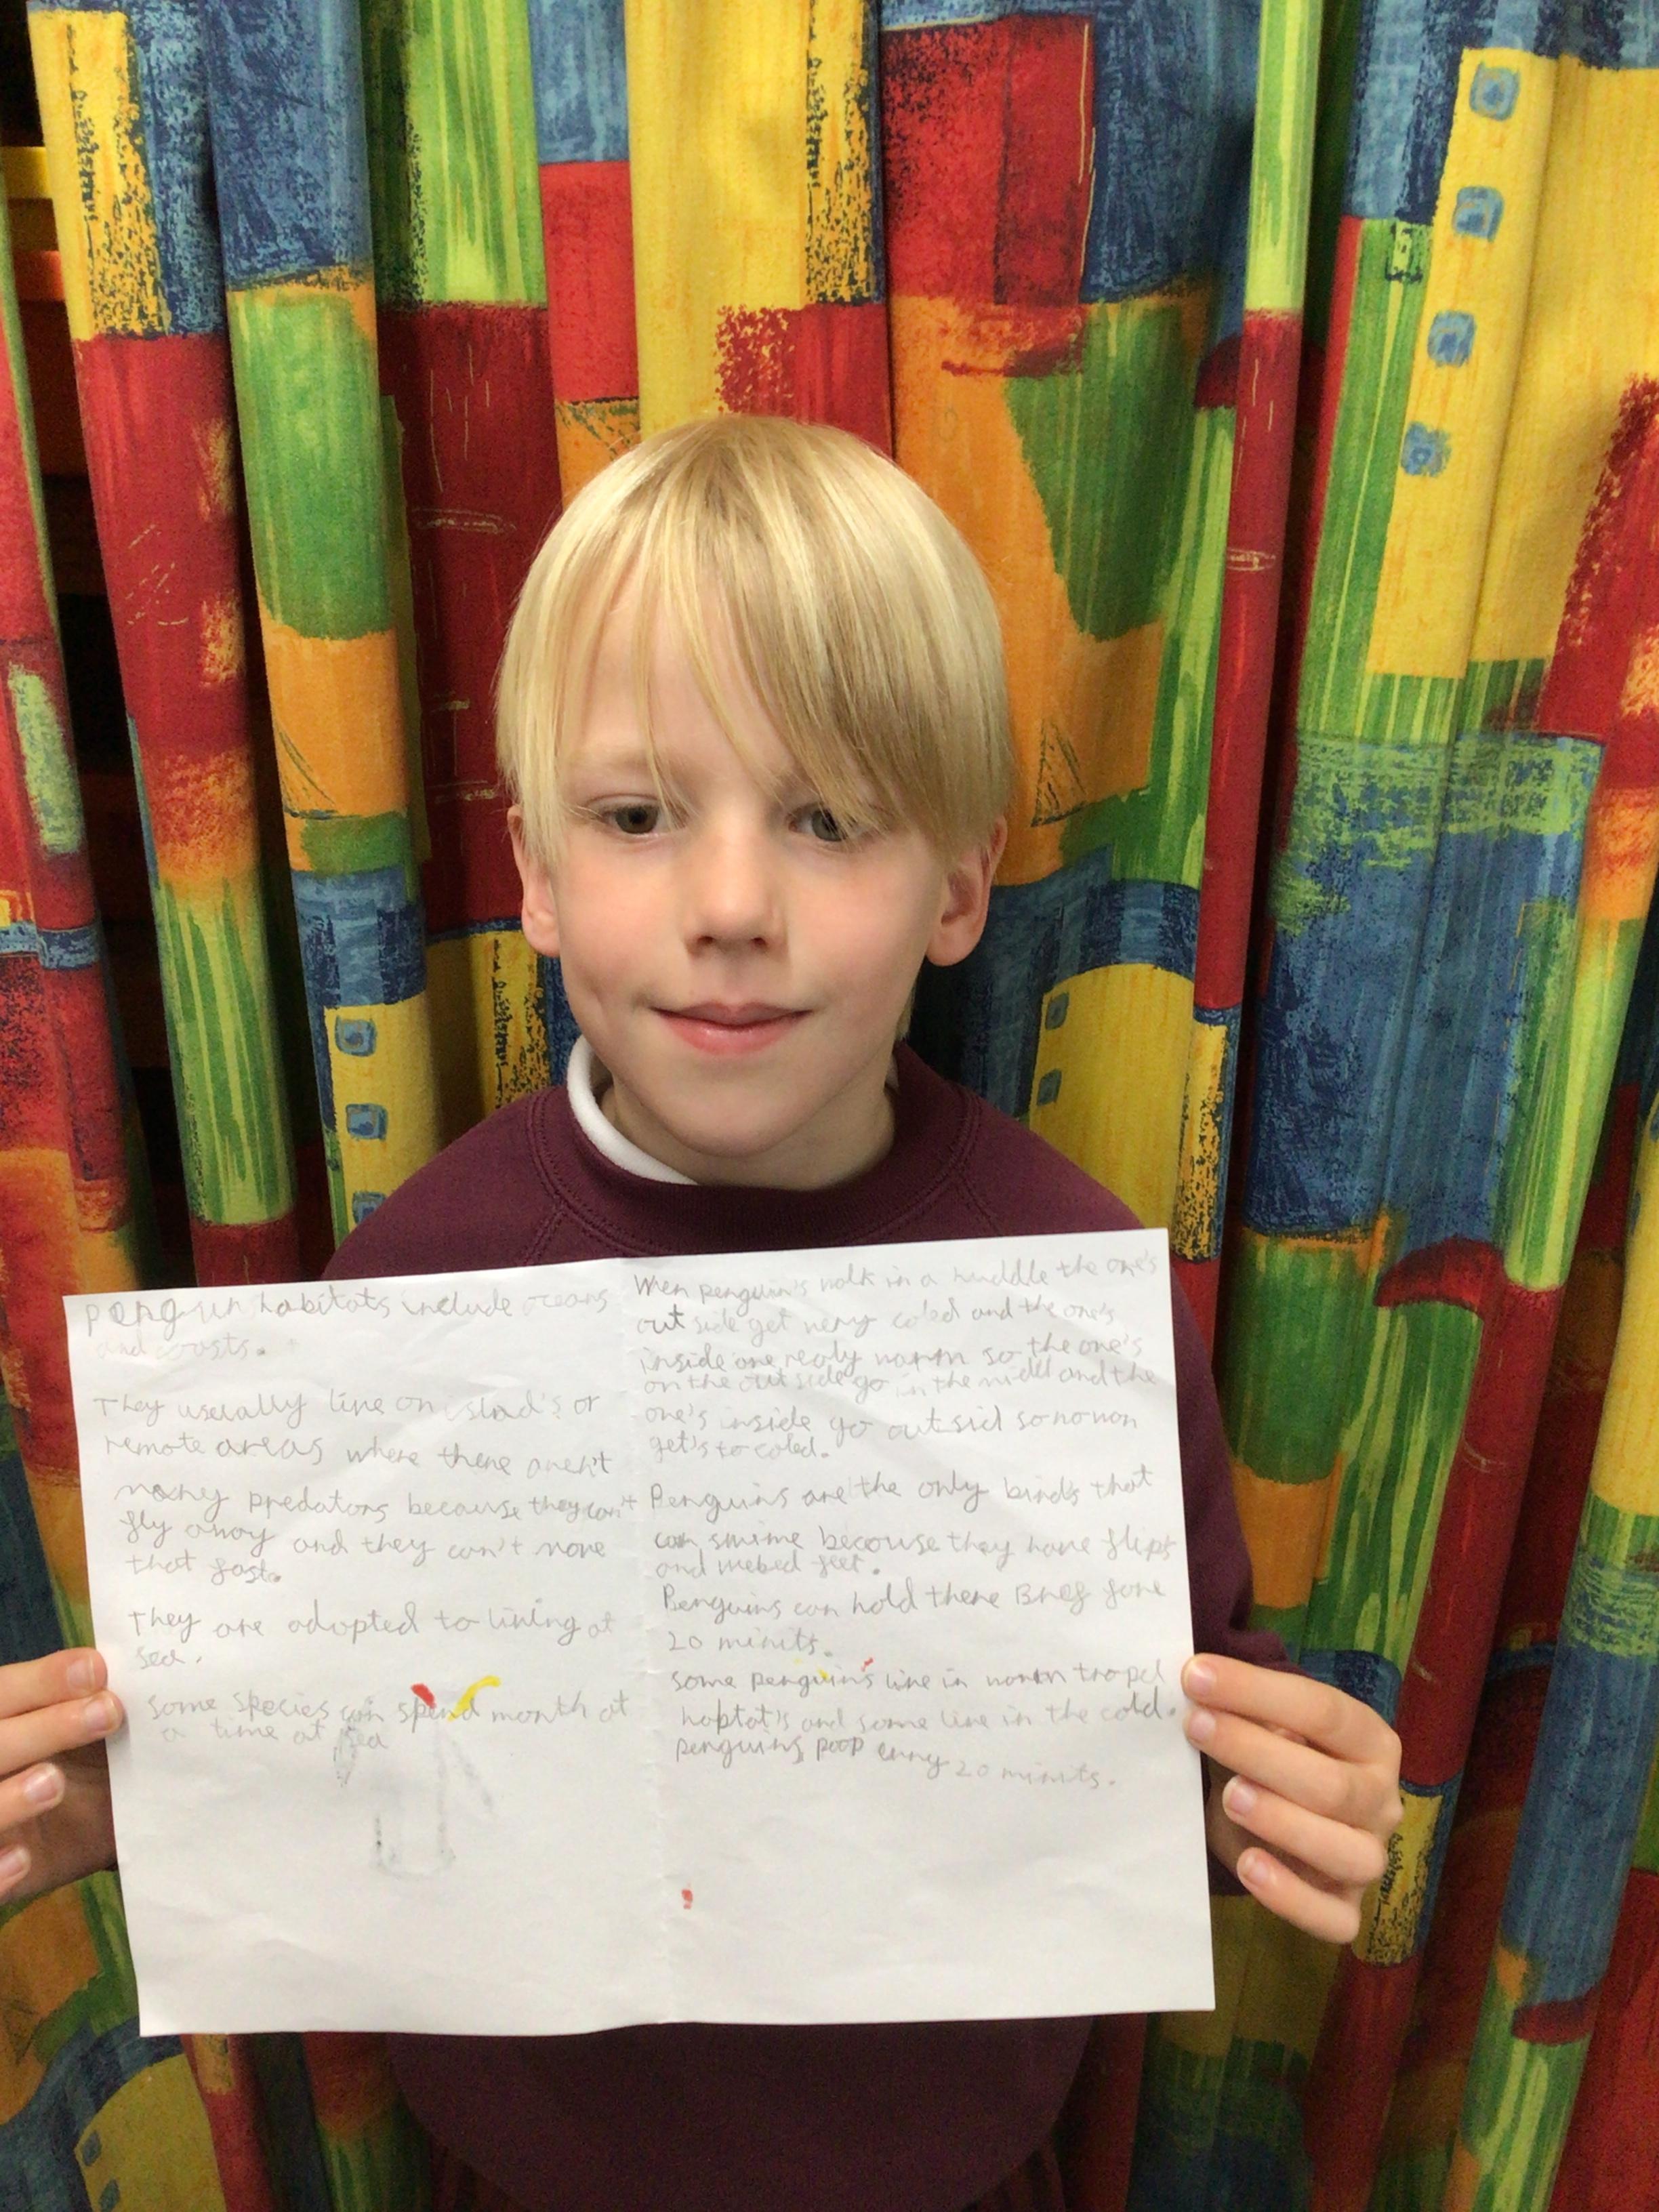 penguin habitats include oceans
and coasts.
They usually live on islad's or
remote areas where there aren't
many predators because they can't
fly away and they can't move
that fast.
They are adapted to living at
sea.
Some species can spend month at
a time at sea
When penguin's walk in a huddle the one's
out side get very coled and the one's
inside are realy warm so the one's
on the out side go in the middl and the
one's inside go out sid so no won
get's to coled.
Penguins are the only birds that
can swime because they have flips
and webed feet.
Penguins can hold there Bref fore
20 minits.
some penguin's live in warm tropcl
haptat's and some live in the cold.
penguins poop evry 20 minits.